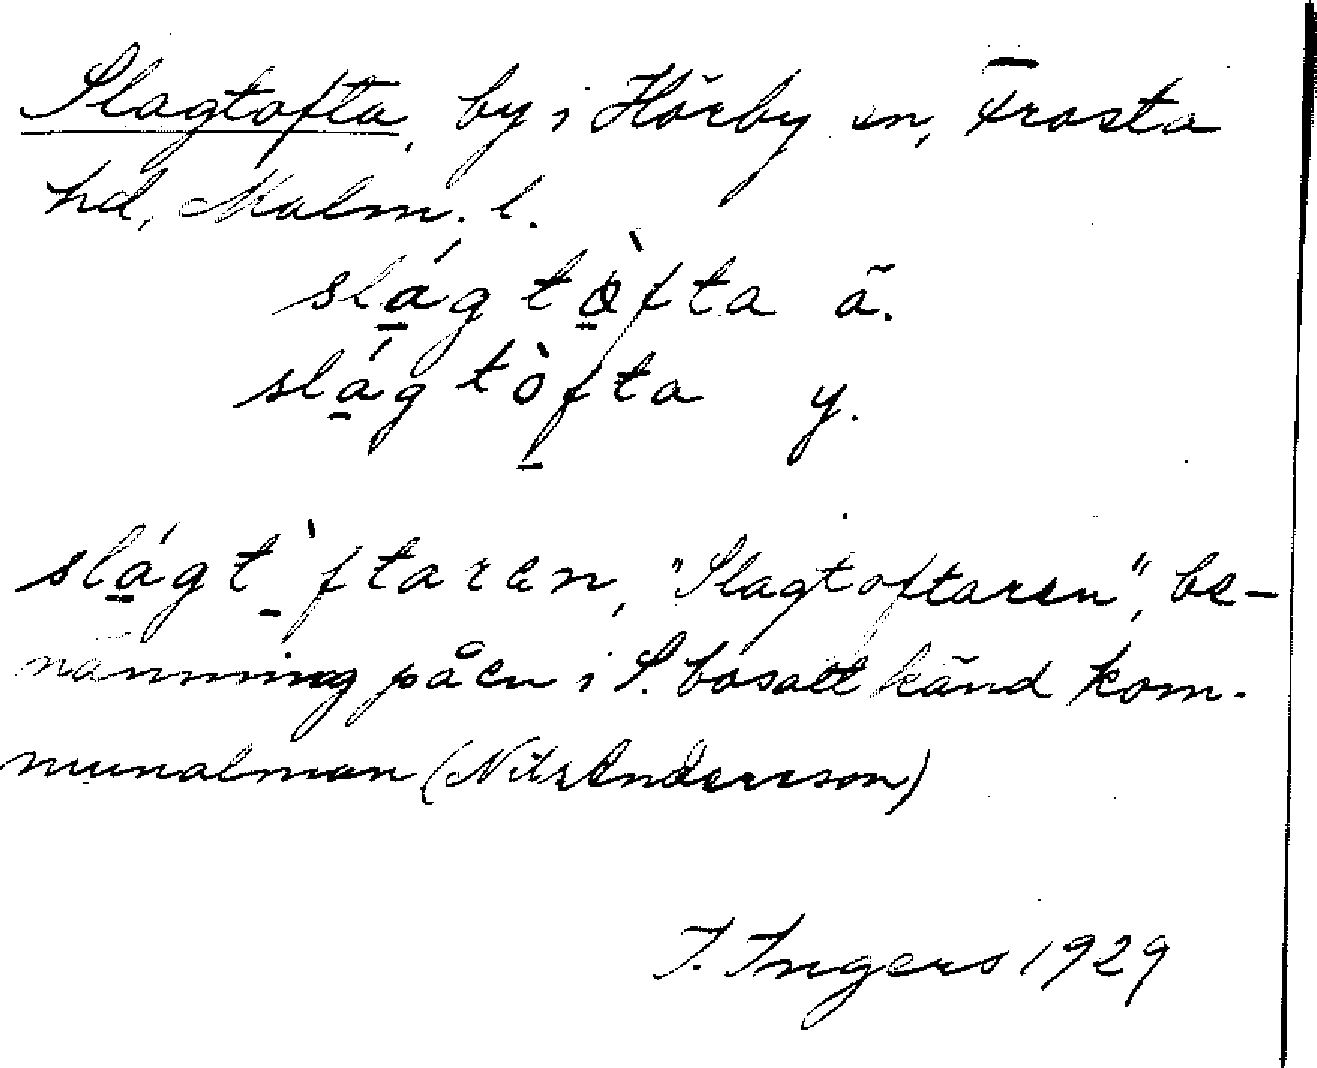 Slagtofta, by i Hörby sn, Frosta
hd, Malm. l.
slá̱gtò̱fta ä.
slá̱gtò̱fta y.
slá̱gt ̱̀ftaren, "Slagtoftaren", be-
nämning på en i S. bosatt känd kom-
munalman (Nils Andersson)
I. Ingers 1929